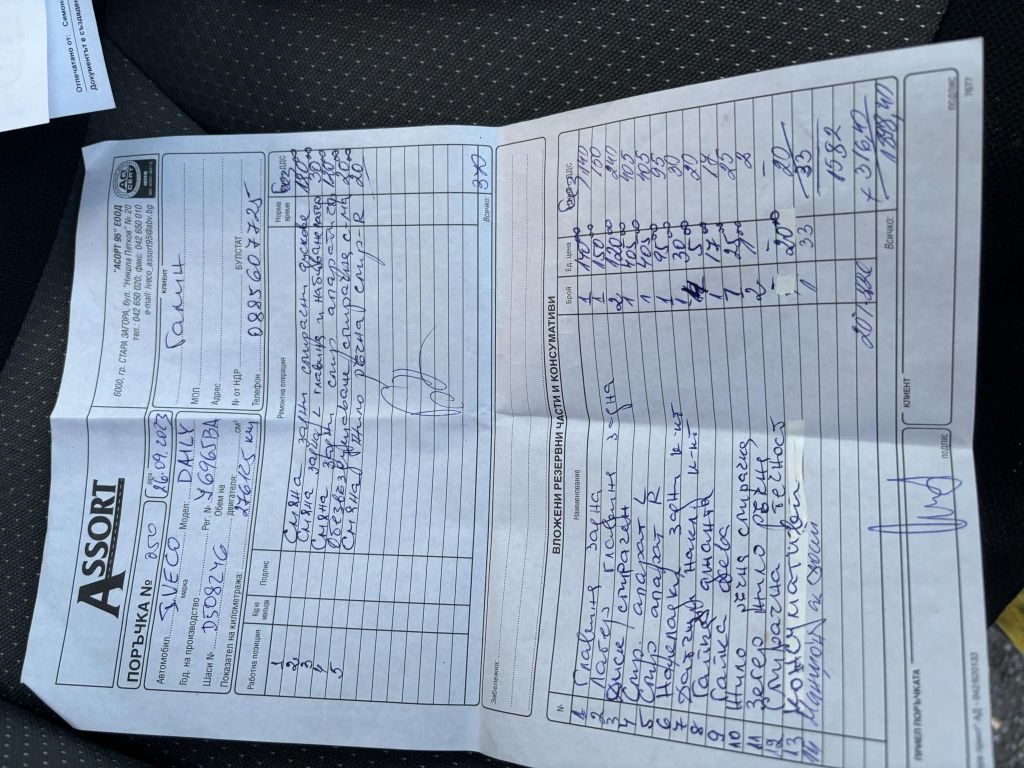 Отпечатано от: Симон
Документът е създаден
ASSORT
"АСОРТ 95" ЕООД
6000, гр. СТАРА ЗАГОРА, бул. "Никола Петков" № 20
тел.: 042 650 020; факс: 042 650 010
e-mail: iveco_assort95@abv.bg
ПОРЪЧКА № 250
дата 26.09.2023
КЛИЕНТ
Галин
Автомобил IVECO Модел: DAILY
марка
МОЛ
Год. на производство Рег. № У6965ВА
Адрес
Шаси № D508246 Обем на двигателя: см³
№ от НДР БУЛСТАТ
Показател на километража: 276125 км
Телефон 0885607725
Работна позиция Код на монтьора Подпис Ремонтна операция Норма време Без ДДС
1 Смяна задни спирачни дискове
2 Смяна задна L главина и набиване лагер 30
3 Смяна задни спир апарати
4 Обезвъздушаване спирачна с-ма
5 Смяна жило ръчна спир-R 20
Всичко: 370
Забележка:
ВЛОЖЕНИ РЕЗЕРВНИ ЧАСТИ И КОНСУМАТИВИ
№ Наименование Брой Ед. цена Без ДДС
1 Главина задна 1 140 140
2 Лагер главина задна 1 150 150
3 Диск спирачен 2 120 240
4 Спир апарат L 1 405 405
5 Спир апарат R 1 405 405
6 Накладки задни к-кт 1 95 95
7 Датчик накл к-кт 1 30 30
8 Гайка джанта 4 5 20
9 Гайка лява 1 17 17
10 Жило ръчна спирачка 1 25 25
11 Зегер жило ръчно 2 - 2
12 Спирачна течност - - -
13 Консумативи - 20 20
14 1 33 33
1582
20% ДДС + 316,40
Всичко: 1898,40
ПРИЕЛ ПОРЪЧКАТА
подпис
КЛИЕНТ
ПОДПИС
7677